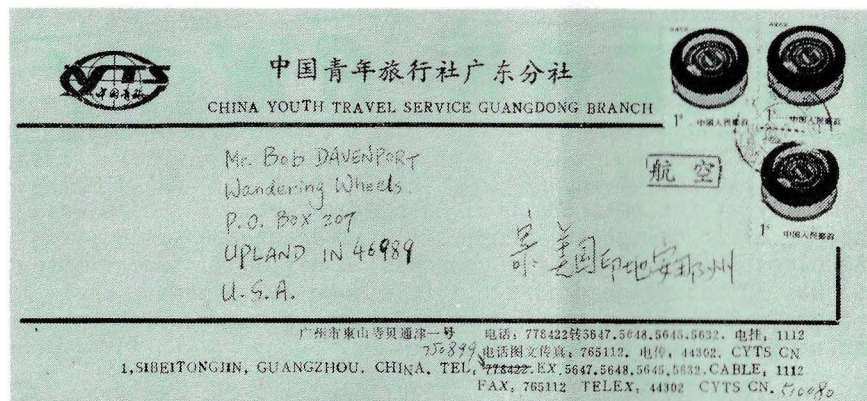 CYTS
中国青旅
中国青年旅行社广东分社
CHINA YOUTH TRAVEL SERVICE GUANGDONG BRANCH
1分 中国人民邮政
1分 中国人民邮政
航空
1分 中国人民邮政
Mr. Bob DAVENPORT
Wandering Wheels.
P.O. Box 207
UPLAND IN 46989
U.S.A.
美国印地安那州
广州市東山寺贝通津一号 电话:778422转5647.5648.5645.5632. 电挂:1112
750899 电话图文传真:765112. 电传:44302. CYTS CN
1,SIBEITONGJIN, GUANGZHOU. CHINA. TEL:778422.EX.5647.5648.5645.5632.CABLE:1112
FAX:765112 TELEX:44302 CYTS CN. 510080